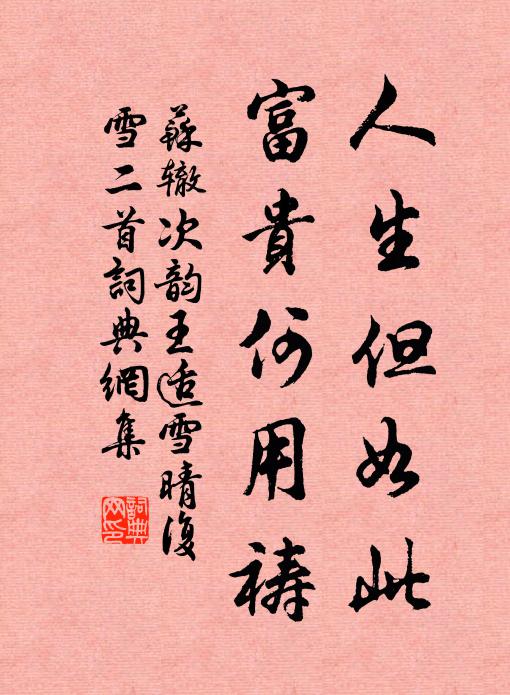 人生但如此
富貴何用禱
蘇辙次韵王适雪晴復
雪二首詞典網集
詞典
网印